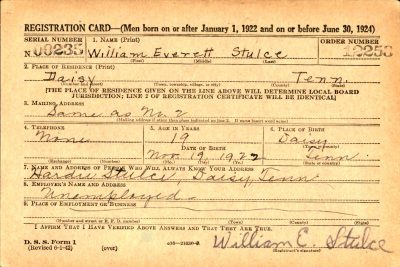 REGISTRATION CARD—(Men born on or after January 1, 1922 and on or before June 30, 1924)
SERIAL NUMBER 1. NAME (Print) ORDER NUMBER
N 00235 William Everett Stulce 12256
2. PLACE OF RESIDENCE (Print)
Daisy Tenn.
(Number and street) (Town, township, village, or city) (County) (State)
[THE PLACE OF RESIDENCE GIVEN ON THE LINE ABOVE WILL DETERMINE LOCAL BOARD
JURISDICTION; LINE 2 OF REGISTRATION CERTIFICATE WILL BE IDENTICAL]
3. MAILING ADDRESS
Same as No. 2
[Mailing address if other than place indicated on line 2. If same insert word same]
4. TELEPHONE 5. AGE IN YEARS 6. PLACE OF BIRTH
None 19 Daisy
DATE OF BIRTH
Nov. 19 1922 Tenn
7. NAME AND ADDRESS OF PERSON WHO WILL ALWAYS KNOW YOUR ADDRESS
Hardie Stulce Daisy, Tenn
8. EMPLOYER'S NAME AND ADDRESS
Unemployed
9. PLACE OF EMPLOYMENT OR BUSINESS
(Number and street or R. F. D. number) (Town) (County) (State)
I AFFIRM THAT I HAVE VERIFIED ABOVE ANSWERS AND THAT THEY ARE TRUE.
D. S. S. Form 1
(Revised 6-1-42) (over) William E. Stulce
(Registrant's signature)